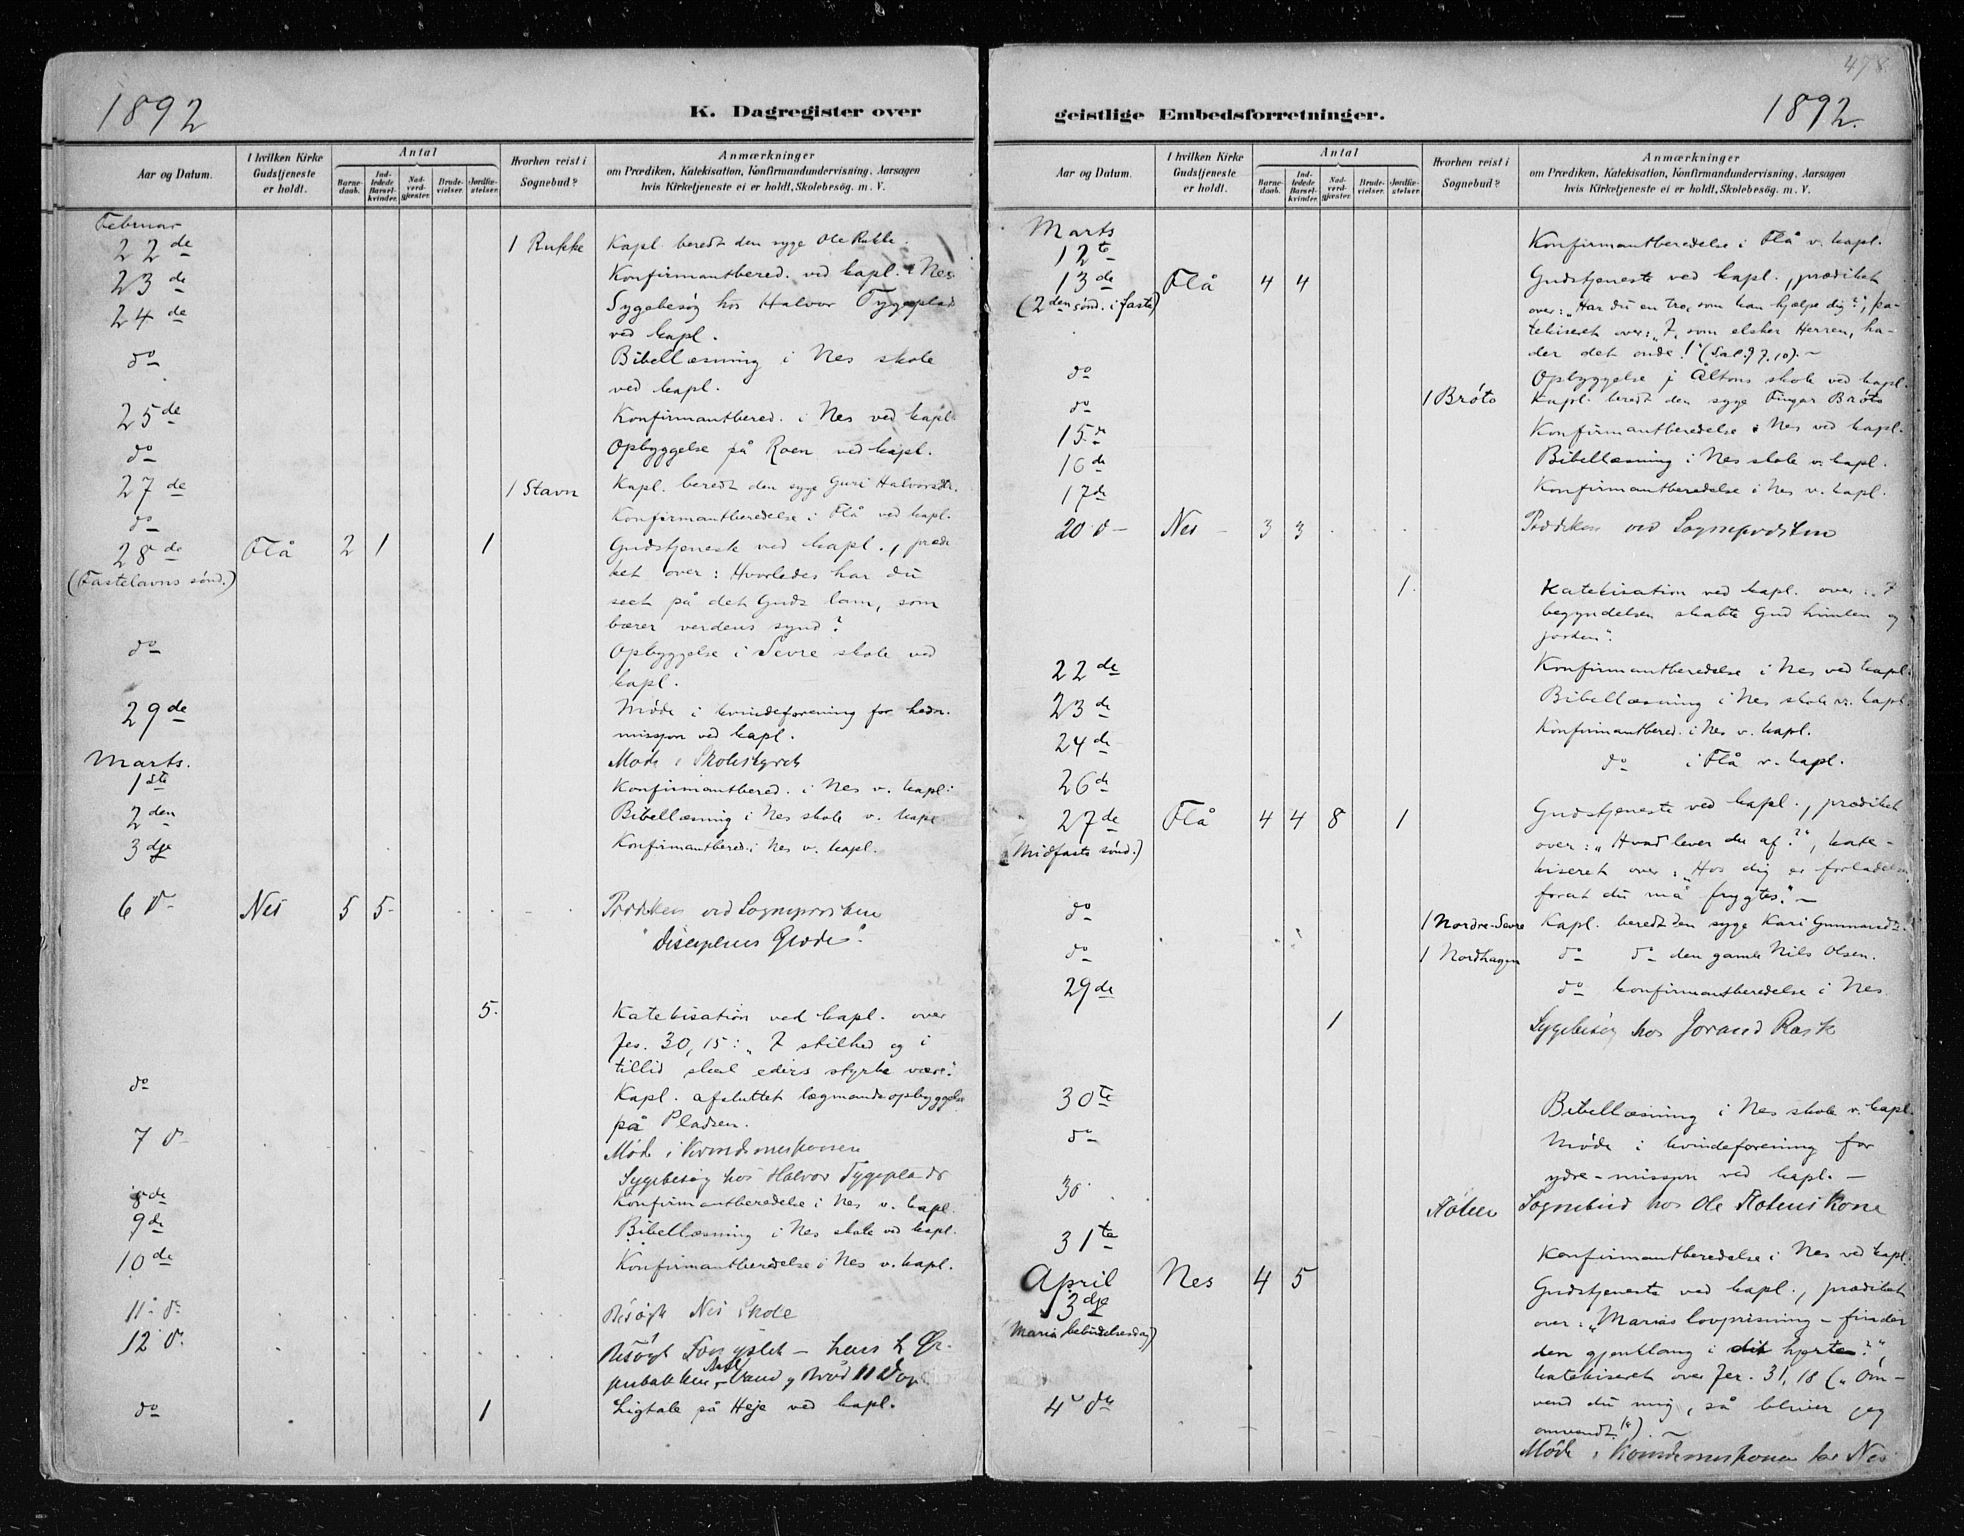 1892
K. Dagregister over
I hvilken Kirke Antal Hvorhen reist i Anmærkninger
Aar og Datum. Gudstjeneste Barne- Ind- Nad- Brude- Jordfæ- Sognebud? om Prædiken, Katekisation, Konfirmandundervisning, Aarsagen
er holdt. daab. ledede verd- vielser. stelser. hvis Kirketjeneste ei er holdt, Skolebesøg. m. V.
Barsel- gjester.
kvinder.
Februar
22de 1 Rukke Kapl. beredt den syge Ole Rukke.
23de Konfirmantbered. ved kapl. i Nes
24de Sygebesøg hos Halvor
ved kapl.
do Bibellæsning i Nes skole
ved kapl.
25de Konfirmantbered. i Nes ved kapl.
do Opbyggelse på Roen ved kapl.
27de 1 Stavn Kapl. beredt den syge Guri Halvorsdtr.
do Konfirmantberedelse i Flå ved kapl.
28de Flå 2 1 1 Gudstjeneste ved kapl., prædi
(Fastelavns sønd.) ket over: Hvorledes har du
seet på det Guds lam, som
bærer verdens synd?
do Opbyggelse i Sevre skole ved
kapl.
29de Møde i kvindeforening for hedn.
missjon ved kapl.
Marts. Møde i Skolestyret
1ste Konfirmantbered. i Nes v. kapl.
2den Bibellæsning i Nes skole v. kapl
3dje Konfirmantbered. i Nes v. kapl.
6 d Nes 5 5 Prædiken ved Sognepresten
"Disciplens Glæde".
5. Katekisation ved kapl. over
Jes. 30,15: "I stilhed og i
tillid skal eders styrke være."
do Kapl. afsluttet lægmandsopbyggelse
på Pladsen.
7 d Møde i
Sygebesøg hos Halvor
8de Konfirmantberedelse i Nes v. kapl.
9de Bibellæsning i Nes skole ved kapl.
10de Konfirmantberedelse i Nes v. kapl.
11 d Besøgt Nes Skole
12 d Besøgt
Vand og Brød
do 1 Ligtale på Heje ved kapl.
478
1892.
geistlige Embedsforretninger.
I hvilken Kirke Antal Hvorhen reist i Anmærkninger
Aar og Datum. Gudstjeneste Barne- Ind- Nad- Brude- Jordfæ- Sognebud? om Prædiken, Katekisation, Konfirmandundervisning, Aarsagen
er holdt. daab. ledede verd- vielser. stelser. hvis Kirketjeneste ei er holdt, Skolebesøg. m. V.
Barsel- gjester.
kvinder.
Marts
12te Konfirmantberedelse i Flå v. kapl.
13de Flå 4 4 Gudstjeneste ved kapl., prædiket
(2den sønd. i faste) over: "Har du en tro, som kan hjælpe dig?", ka-
tekiseret over: "I, som elsker Herren, ha-
der det onde!" (Sal. 97.10). –
do Opbyggelse i skole ved kapl.
do 1 Brøto Kapl. beredt den syge Brøto
15de Konfirmantberedelse i Nes ved kapl.
16de Bibellæsning i Nes skole v. kapl.
17de Konfirmantberedelse i Nes v. kapl.
20 d – Nes – 3 3 Prædiken ved Sognepresten
1. Katekisation ved kapl. over: "I
begyndelsen skabte Gud himlen og
jorden".
22de Konfirmantberedelse i Nes ved kapl.
23de Bibellæsning i Nes skole v. kapl.
24de Konfirmantbered. i Nes v. kapl.
26de do i Flå v. kapl.
27de Flå 4 4 8 1 Gudstjeneste ved kapl., prædiket
(Midfaste sønd.) over: "Hvad lever du af?", kate-
kiseret over: "Hos dig er forladelse,
forat du må frygtes." –
do 1 Nordre-Sevre Kapl. beredt den syge Kari Gunnarsdtr.
do 1 Nordhagen do do den gamle Nils Olsen.
29de do konfirmantberedelse i Nes.
1 Sygebesøg hos Jorand Rask
30te Bibellæsning i Nes skole v. kapl.
do Møde i kvindeforening for
ydre-missjon ved kapl. –
30 Sognebud hos Ole kone
31te Konfirmantberedelse i Nes ved kapl.
April Nes 4 5 Gudstjeneste ved kapl., prædiket
3dje over: "Marias lovprisning – finder
(Maria bebudelsesdag) den gjenklang i dit hjerte?"
katekiseret over Jer. 31,18 ("Om-
vend du mig, så bliver jeg
omvendt"). –
4 de Møde i for Nes